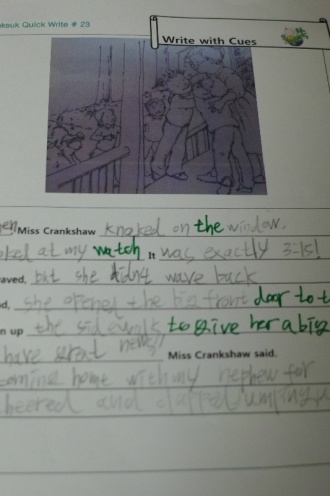 Quick Write # 23
Write with Cues
Miss Crankshaw knoked on the window.
at my watch. It was exactly 3:15!
but she didnt wave back
she opened the big front door to t
up the sidewalk to give her a big
have great news!! Miss Crankshaw said.
home with my nephew for
and clapped